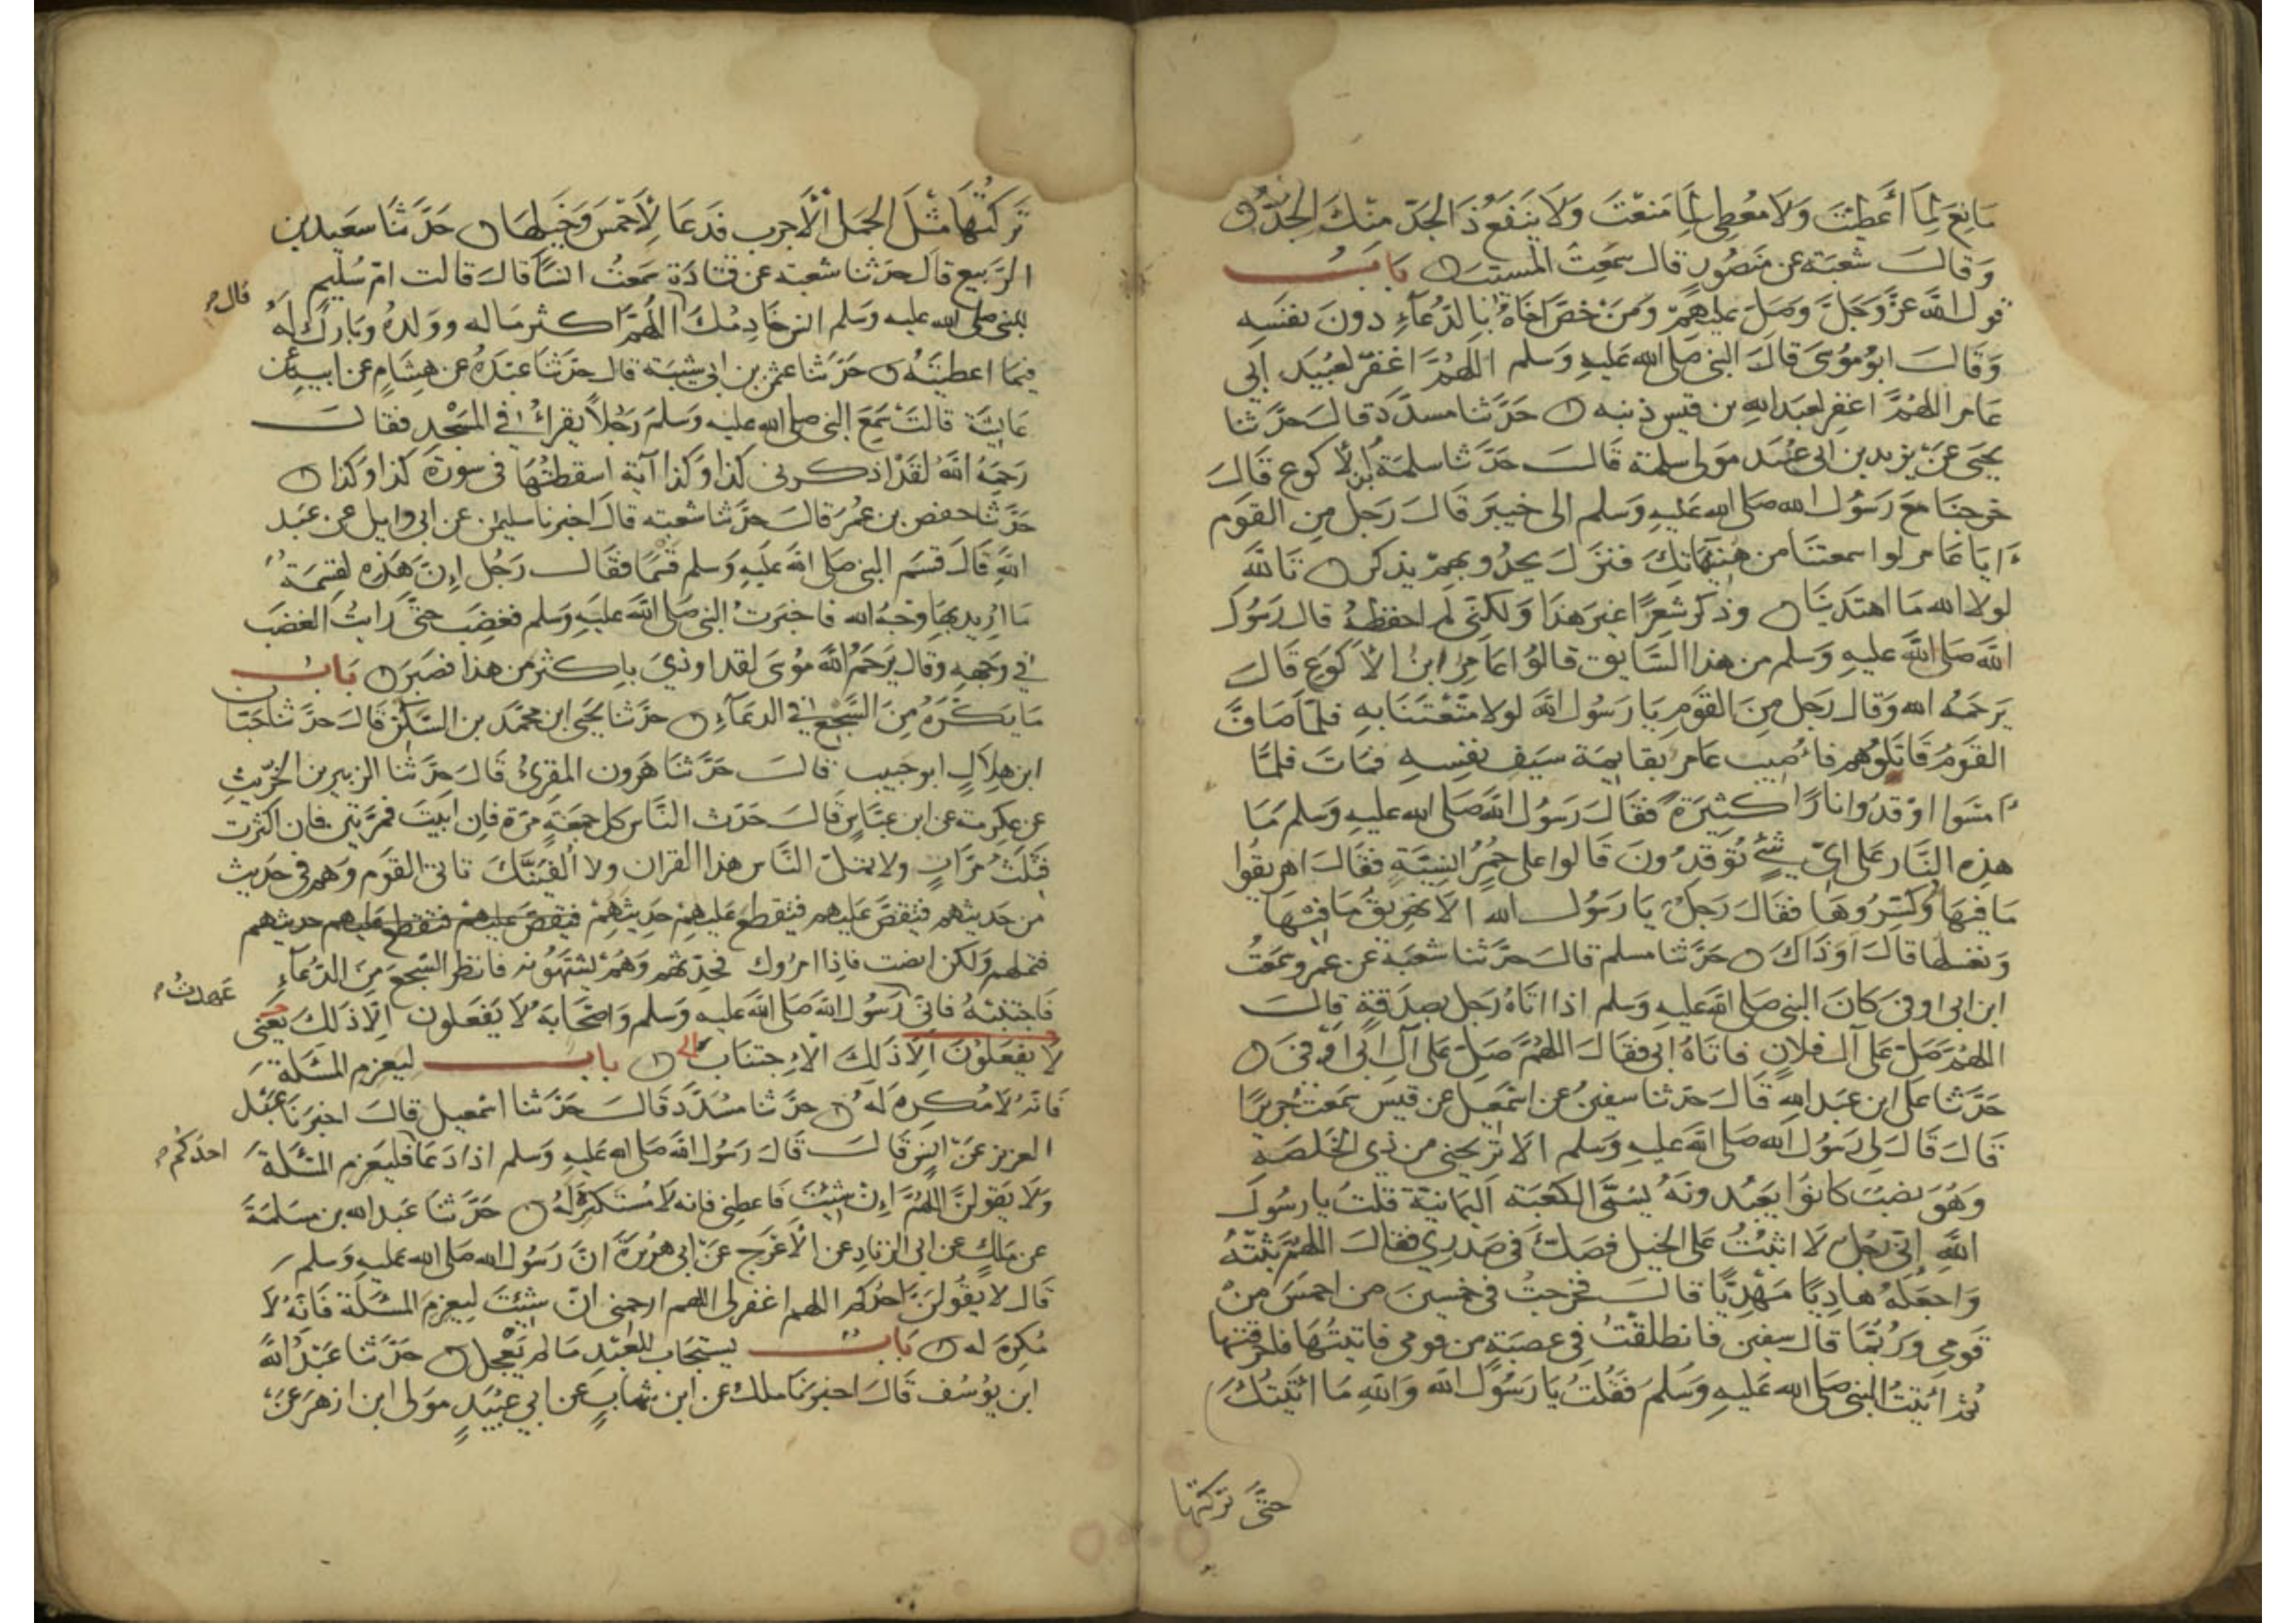 مَانِعَ لِمَا أَعْطَيْتَ وَلَا مُعْطِي لِمَا مَنَعْتَ وَلَا يَنْفَعُ ذَا الجَدِّ مِنْكَ الجَدُّ
وَقَالَ شعْبَة عن مَنصُورٍ قال سمعتُ المسيّب بَابُ
قول الله عَزَّ وَجَلَّ وَصَلِّ عَلَيْهِمْ وَمَنْ خصَّ اَخَاهُ بِالدُّعَاءِ دونَ نفسَهِ
وَقالَ ابو مُوسَى قالَ النبي صلى الله عَليهِ وَسَلم اللهُمَّ اغفرْ لعُبَيد ابى
عَامر اللهُمَّ اغفر لعبَد الله بن قيس ذنبه حَدَّثنا مسدَّد قالَ حَدَّثنا
يحيَى عَنْ يزيد بن ابى عُبَيد مَولى سلمة قَالَ حَدَّثنا سلمَة بنُ الأكوع قَالَ
خرجنَا مع رَسُول الله صلى الله عَليهِ وَسلم الى خيبَر قَالَ رَجل مِن القَوم
ايَا عَامر لوا سمعتنَا من هُنَيهَاتِكَ فنزلَ يحدُو بهِمْ يذكر تَاللَّه
لولا الله مَا اهتدَينَا وذكر شعرًا غيرَ هذَا وَلكنّى لم احفظهُ قال رَسُول
الله صَلى اللهُ عَليهِ وَسلم من هذا السَّايق قالوُا عَامِر ابنُ الأكوَع قَالَ
يَرحَمُه الله وَقال رَجل مِنَ القَومِ يَا رَسُول الله لولا مَتَّعْتَنَا بهِ فلمَّا صَافَّ
القَومُ قَاتَلُوهم فاُصيب عَامر بقايمَة سَيفِ نفسِهِ فمَاتَ فلمَّا
امسَوا اوْقدُوا نارًا كثيرَةً فقَالَ رَسُول الله صَلى الله عليهِ وَسلم مَا
هذِه النَّار عَلى ايّ شَيْءٍ تُوقدُونَ قَالوا على حُمُرٍ انسيَّةٍ فقَالَ اهريقُوا
مَا فيهَا وَكَسِّرُوهَا فقالَ رَجلٌ يَا رَسُول الله الا نهريقُ مَا فيهَا
وَنغسلها قالَ اوْ ذَاكَ حَدَّثنا مسلم قالَ حَدَّثنا شعبَة عن عمرو سمَعتُ
ابن ابى اوفى كانَ النبى صَلى الله عَليهِ وَسلم اذا اتَاهُ رَجل بصدَقةٍ قالَ
اللهُمَّ صَلّ عَلى آل فلان فاتَاهُ ابى فقالَ اللهُمَّ صَلّ عَلى آل ابى اوفى
حَدَّثنا عَلى ابن عَبد الله قَالَ حَدثنا سفينُ عن اسْمعيل عن قيس سمَعتُ جريرًا
قَالَ قَالَ لى رَسُول الله صَلى الله عَليهِ وَسلم الا تريحنى من ذي الخَلصَة
وَهُوَ نصُبٌ كَانوُا يَعبُدونَهُ يُسَمَّى الكعْبَة اليَمانيَة قلتُ يا رسُولَ
اللَّهِ اِنّى رَجُلٌ لَا اثبتُ عَلى الخيل فصَكَّ فى صَدرِي فقالَ اللهمَّ ثبّتهُ
وَاجعَلهُ هادِيًا مَهْدِيًّا قالَ فخرجتُ فى خمسينَ من احمسَ مِنْ
قومى وَرُبَّمَا قال سفين فانطلقْتُ فى عصبَة من قومى فاتيتُهَا فاحرَقتهَا
ثمّ اتيتُ النبى صَلى الله عَليهِ وَسلمَ فَقُلتُ يَا رَسُول الله وَاللهِ مَا اتَيتُكَ
حتَّى تركتها
تَرَكْتُهَا مثلَ الجَمل الأَجرب فدَعَا لأَحْمَسَ وَخَيلِهَا حَدَّثنَا سَعيد بن
الرَّبيع قال حدثنا شعبَة عن قتادَة سَمعْتُ انسًا قالَ قالت امّ سُلَيم
قال
للنبى صلى الله عليه وسَلم انس خَادِمُكَ اللهُمَّ اكثر مَاله وَوَلدهُ وبَارك لهُ
فيمَا اعطيتَهُ حَدَّثنا عثمن بن ابى شيبَة قال حَدَّثنَا عَبدَةُ عن هِشَامٍ عن ابيهِ عن
عَايشَة قالتْ سَمِعَ النبى صلى الله عليه وَسَلمَ رَجُلاً يقرأُ فى المسْجدِ فقالَ
رَحِمَهُ اللَّهُ لَقَدْ اذكرنى كذَا وَكَذا آيَة اسقطتُهَا فى سورَة كذا وكذا
حَدَّثنا حفص بن عُمَرُ قالَ حدَّثنا شعبَه قالَ اخبرنا سليمن عن ابى وايل عن عَبد
الله قَالَ قَسَم النبى صَلى الله عَليهِ وَسلم قَسْمًا فقَالَ رَجُل اِنَّ هَذِهِ لقسمَة
مَا اريدَ بهَا وَجْهُ الله فاخبَرتُ النبى صَلى اللهُ عَليَهِ وَسلم فغضِبَ حتَّى رَايتُ الغضَبَ
فى وَجههِ وقال يَرحَمُ اللَّهُ مُوسَى لقد اوذيَ باكثرَ من هذا فصَبَرَ بَابُ
مَا يُكْرَهُ مِنَ السَّجْعِ فى الدعَاء حَدَّثنا يَحيى ابن محمَّد بن السَّكَن قالَ حدَّثنا حَبَّان
ابن هِلالٍ ابو حَبيب قالَ حَدَّثنَا هَرون المقرئُ قَالَ حَدَّثنا الزبير بن الخرّيتِ
عن عكرمة عن ابن عبَّاسٍ قالَ حَدّث النَّاس كل جمعَةٍ مَرّة فان ابَيتَ فمَرَّتين فان اكثرت
فثَلَثُ مرَّاتٍ ولا تملّ النَّاس هذا القران ولا اُلفيَنَّكَ تاتى القوم وَهم فى حَديث
من حَديثهم فتقصّ عَليهم فتقطع عَليهمْ حَديثهُمْ فتقصَّ عليهمْ فتقطع عليهم حديثهم
فتملهم وَلكن انصت فاذا امرُوك فحدّثهم وَهُمْ يَشتَهُونَه فانظر السَّجعَ مِنَ الدُّعاءِ
عَهدتُ
فَاجتَنبْهُ فانّى رَسُول الله صَلى اللهُ عليه وَسلم وَاصْحَابَهُ لَا يَفعَلون اِلَّا ذَلكَ يَعنى
لَا يفعَلُونَ اِلَّا ذَلِكَ الاِجتنَاب الى بابُ ليَعزِم المسَلة
فَانهُ لَا مُكْرِهَ لَهُ حدَّثنا مسَدَّد قَالَ حَدَّثنا اسْمعيل قالَ اخبرَنا عَبْد
العزيز عَنْ انس قَالَ قَالَ رَسُول الله صَلى الله عَليهِ وَسلم اذا دَعَا فليَعزم المسْئلة
احدُكُم
وَلَا يَقولنَّ اللهُمَّ اِنْ شِئتَ فاعطِنى فانه لَا مُسْتَكرِهَ لَهُ حَدَّثنَا عَبد الله بن مَسلمَة
عن مَلكٍ عن ابى الزنادِ عن الأعْرج عَنْ ابى هرُيرَة انَّ رَسُول الله صَلى الله عَليهِ وَسلم
قَال لا يقُولنَّ احَدُكم اللهم اغفر لى اللهم ارحمنى ان شِئتَ ليَعزم المسْئلَة فَانّهُ لَا
مُكرِهَ له بَابُ يسْتجَاب للعَبْدِ مَا لم يَعْجل حَدَّثنا عَبْدُ اللَّهِ
ابن يوُسُف قَالَ اخبرَنَا ملكُ عن ابن شهَابٍ عَن ابى عبَيدٍ مَولى ابن ازهرَ عَن